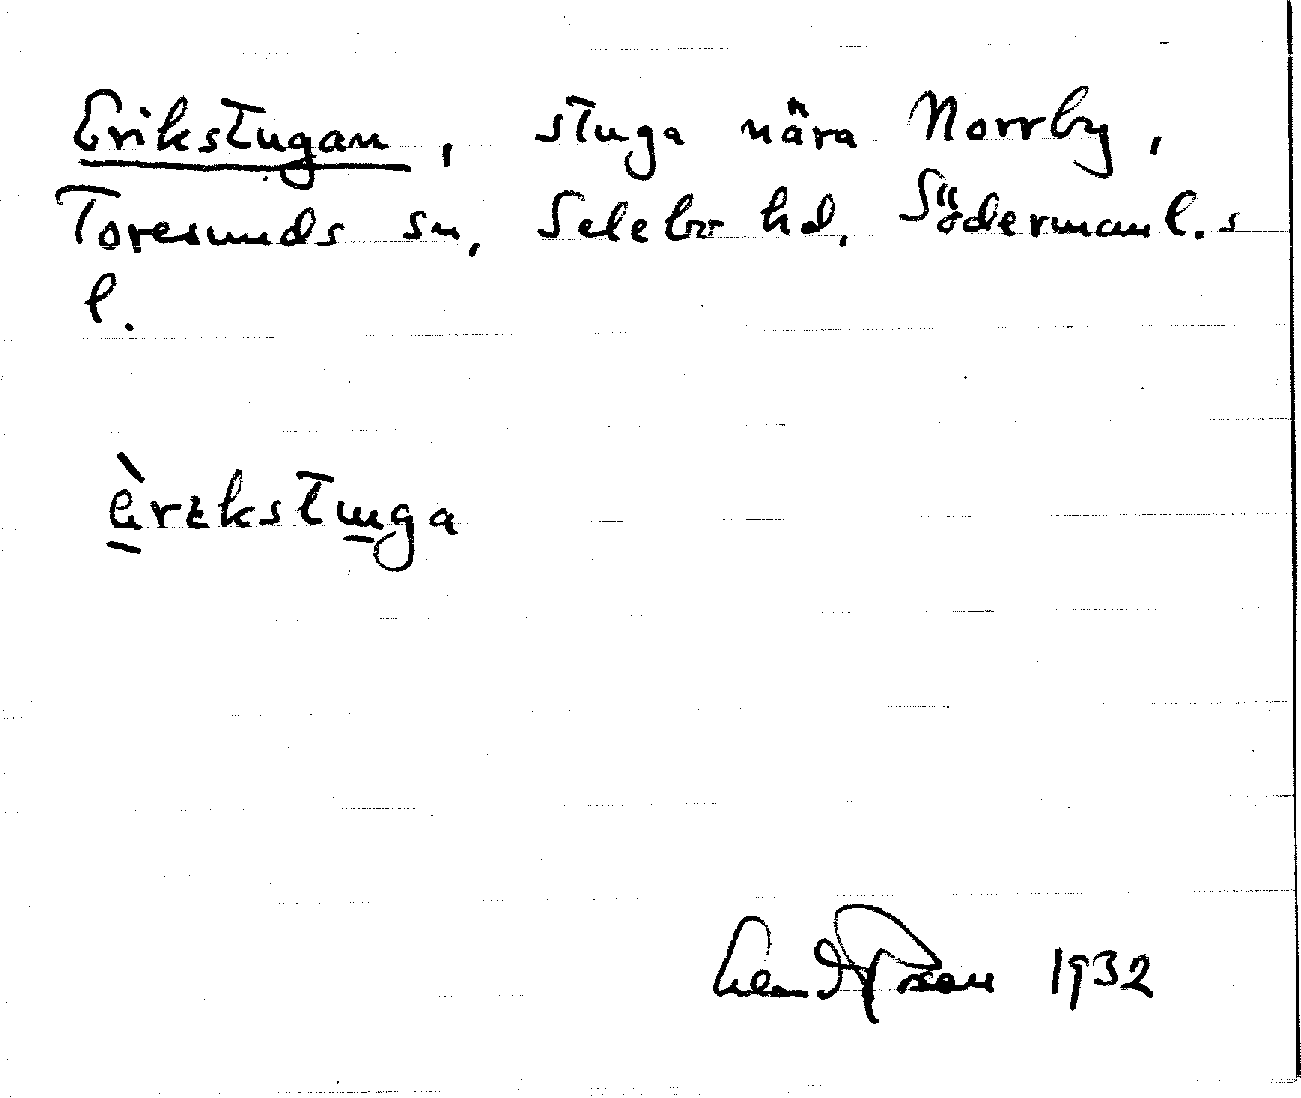 Erikstugan, stuga nära Norrby,
Toresunds sn, Selebo hd, Södermanl.s
l.
èrɩkstuga
1932